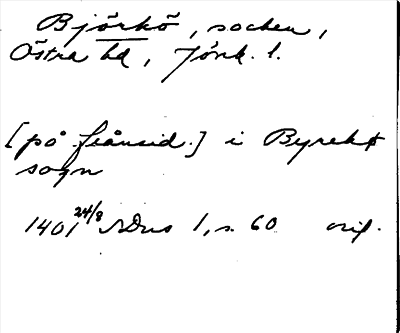 Björkö, socken,
Östra hd, Jönk. l.
[på frånsid.] i Byrekø
sogn
1401 24/8 SDns 1, s. 60 orig.